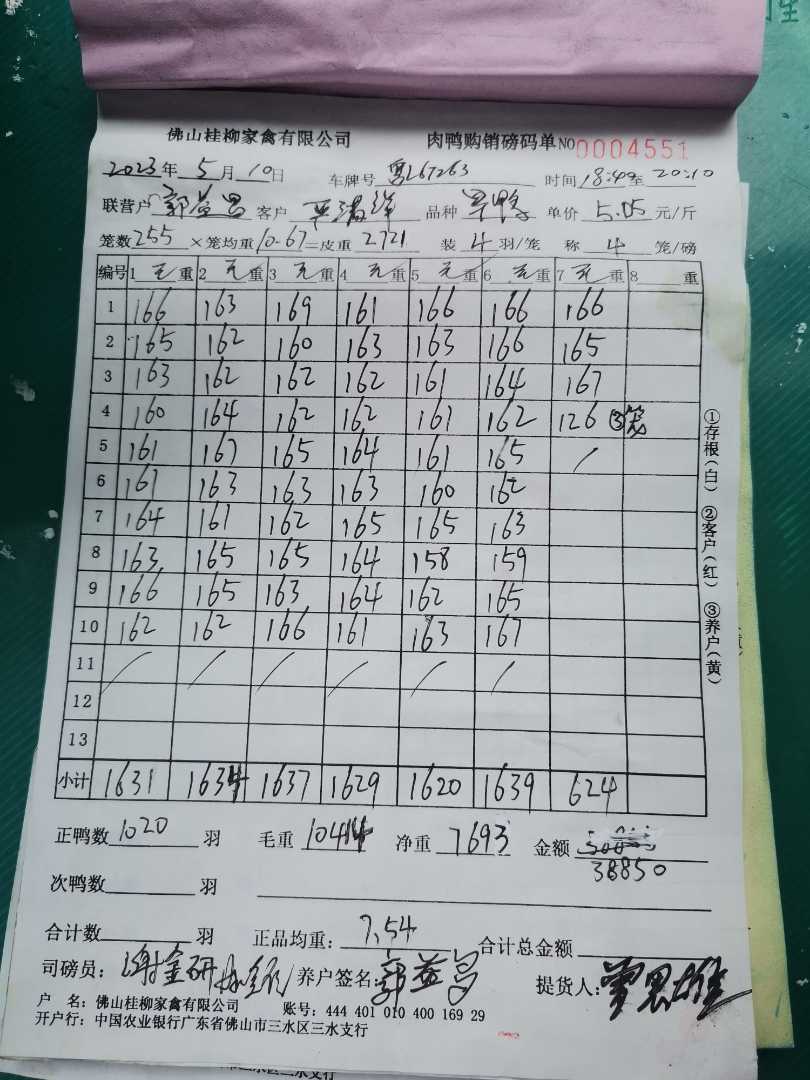 佛山桂柳家禽有限公司 肉鸭购销磅码单 NO 0004551
2023年 5月 10日 车牌号 粤L67263 时间 18:40至 20:10
联营户 郭益昌 客户 品种 单价 5.05 元/斤
笼数 255 ×笼均重 10.67 =皮重 2721 装 4 羽/笼 称 4 笼/磅
编号 1 毛重 2 毛重 3 毛重 4 毛重 5 毛重 6 毛重 7 毛重 8 重
1 166 163 169 161 166 166 166
2 165 162 160 163 163 166 165
3 163 162 162 162 161 164 167
4 160 164 162 162 161 162 126 ③笼
5 161 167 165 164 161 165 /
6 161 163 163 163 160 162
7 164 161 162 165 165 163
8 163 165 165 164 158 159
9 166 165 163 164 162 165
10 162 162 166 161 163 167
11 / / / / / /
12
13
小计 1631 1634 1637 1629 1620 1639 624
正鸭数 1020 羽 毛重 10414 净重 7693 金额
38850
次鸭数 羽
合计数 羽 正品均重: 7.54 合计总金额
司磅员: 谢金研 养户签名: 郭益昌 提货人:
户 名: 佛山桂柳家禽有限公司 账号: 444 401 010 400 169 29
开户行: 中国农业银行广东省佛山市三水区三水支行
①存根(白) ②客户(红) ③养户(黄)